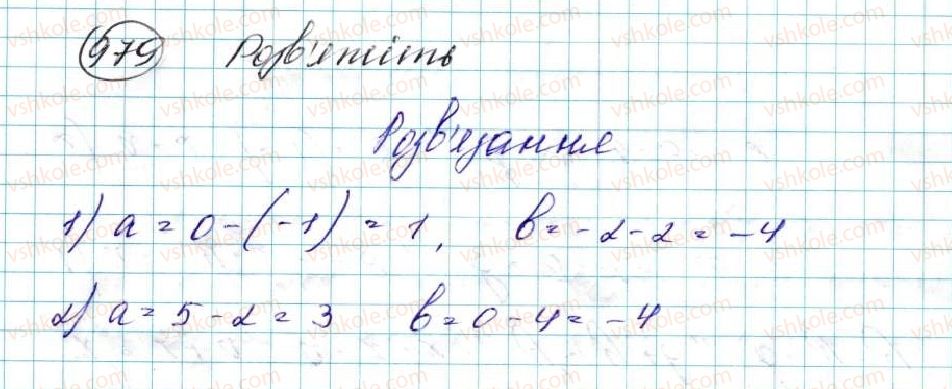 979 Розв'яжіть
Розв'язання
1) a = 0 - (-1) = 1, b = -2 - 2 = -4
2) a = 5 - 2 = 3 b = 0 - 4 = -4